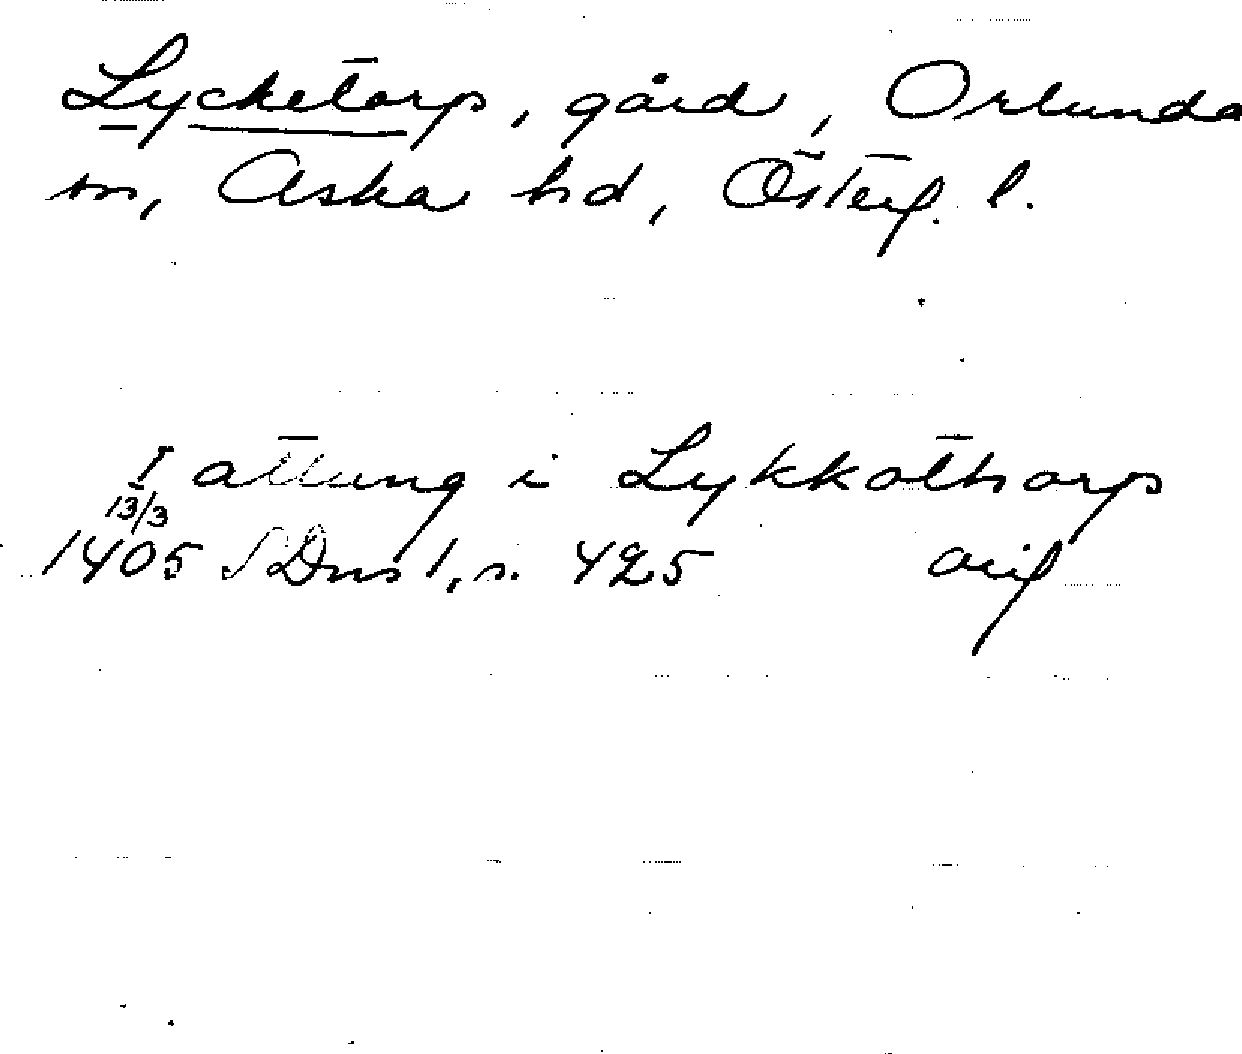 Lycketorp, gård, Orlunda
sn, Aska hd, Österg. l.
I attung i Lykkothorp
13/3
1405 SDns 1, s. 425 avig